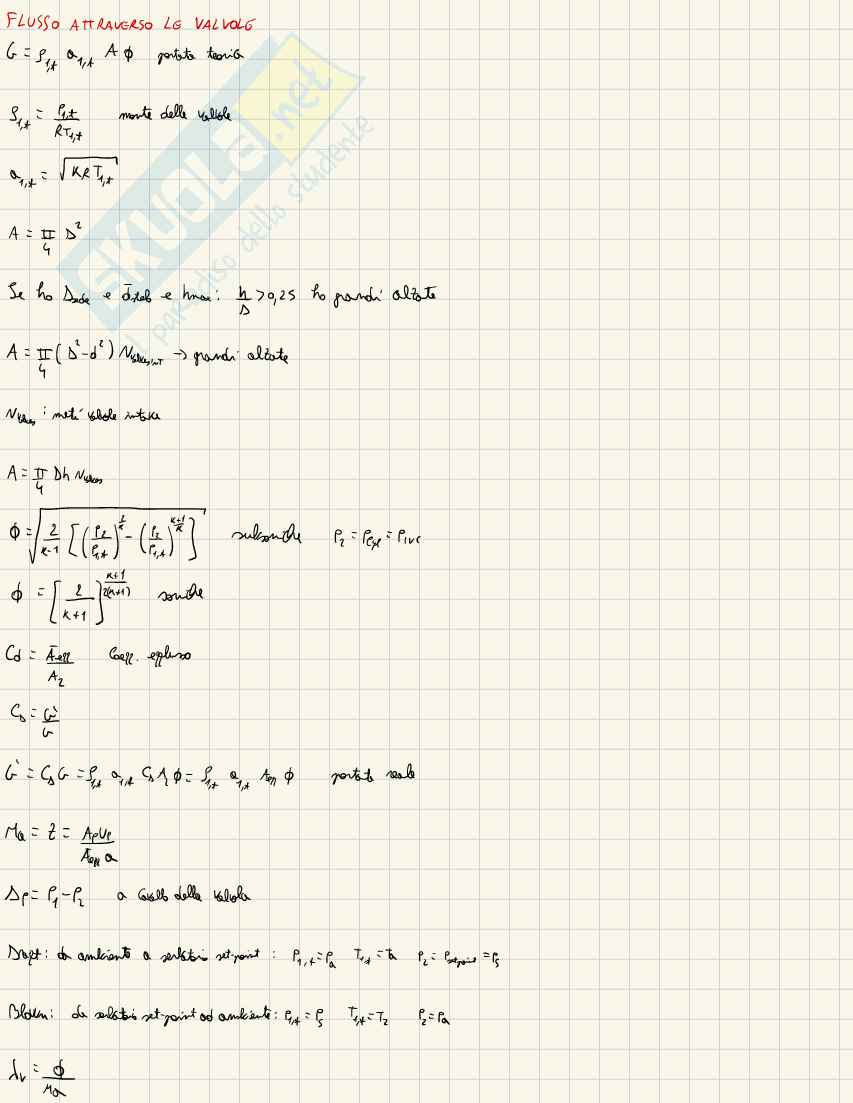 FLUSSO ATTRAVERSO LE VALVOLE
G = ρ₁,t a₁,t A ϕ portata teorica
ρ₁,t = P₁,t / RT₁,t monte delle valvole
a₁,t = √(KRT₁,t)
A = π/4 D²
Se ho Dsede e dstelo e hmax: h/D > 0,25 ho grandi alzate
A = π/4 (D² - d²) Nvalves,int → grandi alzate
Nvalves: metà valvole intake
A = π/4 Dh Nvalves
ϕ = √(2/(K-1) [(P₂/P₁,t)^(2/K) - (P₂/P₁,t)^((K+1)/K)]) subsoniche P₂ = Pcyl = PIVC
ϕ = [2/(K+1)]^((K+1)/2(K+1)) soniche
Cd = Aeff/A₂ Coeff. efflusso
CD = G'/G
G' = CD G = ρ₁,t a₁,t CD A₂ ϕ = ρ₁,t a₁,t Aeff ϕ portata reale
Ma = Z = APUP / Aeff a
ΔP = P₁ - P₂ a cavallo della valvola
: da ambiente a serbatoio set-point: P₁,t = Pa T₁,t = Ta P₂ = Pset-point = Ps
: da serbatoio set-point ad ambiente: P₁,t = Ps T₁,t = T₂ P₂ = Pa
λv = ϕ/Ma
SKUOLA.net
il paradiso dello studente